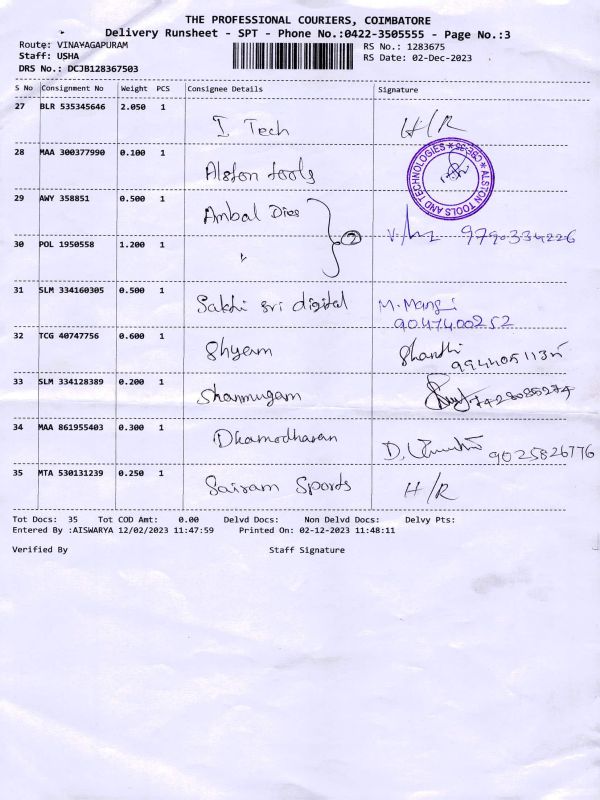 THE PROFESSIONAL COURIERS, COIMBATORE
Delivery Runsheet - SPT - Phone No.:0422-3505555 - Page No.:3
Route: VINAYAGAPURAM RS No.: 1283675
Staff: USHA RS Date: 02-Dec-2023
DRS No.: DCJB128367503
S No Consignment No Weight PCS Consignee Details Signature
27 BLR 535345646 2.050 1 I Tech H/R
28 MAA 300377990 0.100 1 Alston tools
ALSTON TOOLS AND TECHNOLOGIES
29 AWY 358851 0.500 1 Ambal Dies
30 POL 1950558 1.200 1 " 2 9790334226
31 SLM 334160305 0.500 1 Sakthi sri digital M. Mangi
9047400252
32 TCG 40747756 0.600 1 Shyam Shanthi
33 SLM 334128389 0.200 1 Shanmugam
34 MAA 861955403 0.300 1 Dhamodharan D. 9025826776
35 MTA 530131239 0.250 1 Sairam Sports H/R
Tot Docs: 35 Tot COD Amt: 0.00 Delvd Docs: Non Delvd Docs: Delvy Pts:
Entered By :AISWARYA 12/02/2023 11:47:59 Printed On: 02-12-2023 11:48:11
Verified By Staff Signature